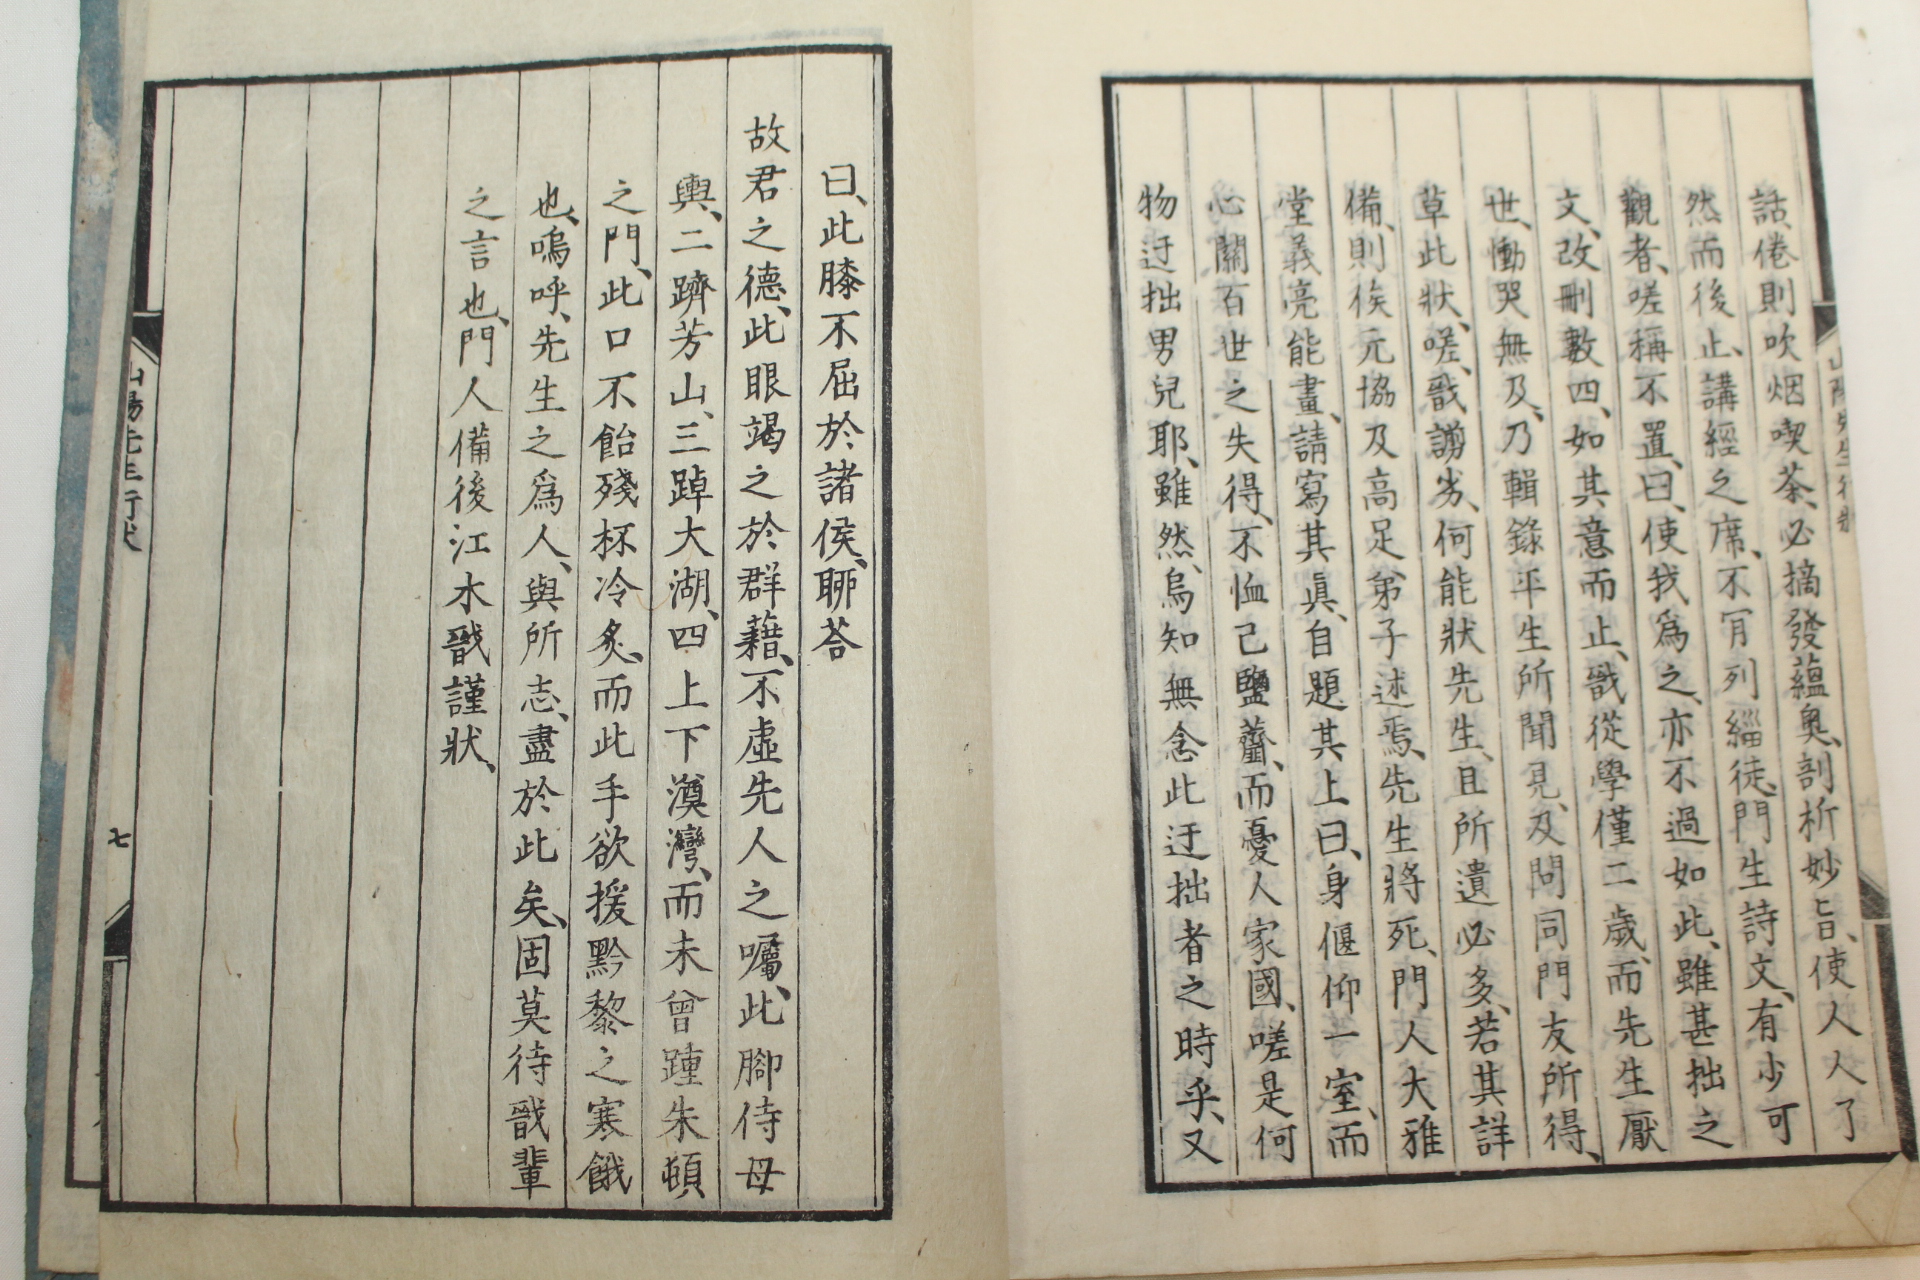 話、倦則吹烟喫茶、必摘發蘊奥、剖析妙旨、使人人了
然而後止、講經之席、不肎列緇徒、門生詩文、有少可
觀者、嗟稱不置、曰、使我爲之、亦不過如此、雖甚拙之
文、改刪數四、如其意而止、戩從學僅二歲、而先生厭
世、慟哭無及、乃輯錄平生所聞見、及問同門友所得、
草此狀、嗟、戩謭劣、何能狀先生、且所遺必多、若其詳
備、則俟元協及高足弟子述焉、先生將死、門人大雅
堂義亮能畫、請寫其眞、自題其上曰、身偃仰一室、而
心關百世之失得、不恤己鹽虀、而憂人家國、嗟是何
物迂拙男兒耶、雖然、烏知無念此迂拙者之時乎、又
曰、此膝不屈於諸侯、聊荅
故君之德、此眼竭之於群藉、不虛先人之囑、此腳侍母
輿、二躋芳山、三踔大湖、四上下澱灣、而未曾踵朱頓
之門、此口不飴殘杯冷炙、而此手欲援黔黎之寒餓
也、嗚呼、先生之爲人、與所志、盡於此矣、固莫待戩輩
之言也、門人備後江木戩謹狀、
山陽先生行狀
七